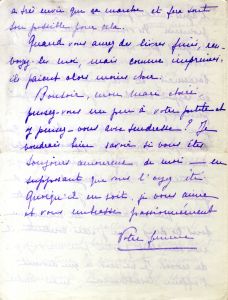 a très envie que ça marche et fera tout
son possible pour cela.
Quand vous aurez des livres finis, en-
voyez les moi, mais comme imprimés,
ils paient alors moins cher.
Bonsoir, mon mari chéri,
pensez-vous un peu à votre petite et
y pensez-vous avec tendresse ? Je
voudrais bien savoir si vous êtes
toujours amoureux de moi — en
supposant que vous l'ayez été
Quoiqu'il en soit, je vous aime
et vous embrasse passionnément
Votre femme